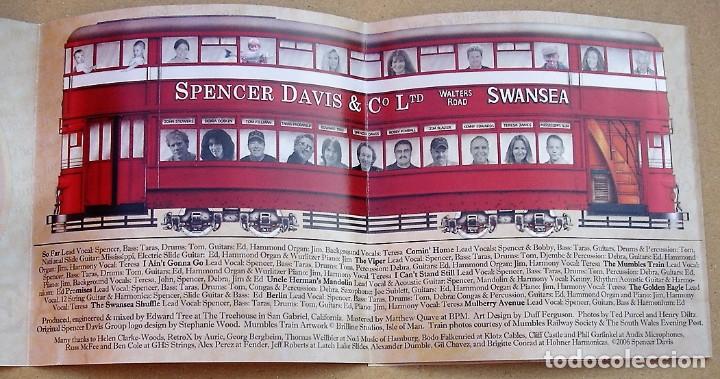 SPENCER DAVIS & Co LTD WALTERS ROAD SWANSEA
JOHN STOWERS DEBRA DOBKIN TOM FILLMAN TARAS PRODANIUK EDWARD TREE SPENCER DAVIS BOBBY KIMBALL JIM BLAZER KENNY EDWARDS TERESA JAMES MISSISSIPPI SLIM
So Far Lead Vocal: Spencer, Bass: Taras, Drums: Tom, Guitars: Ed, Hammond Organ: Jim, Background Vocals: Teresa Comin' Home Lead Vocals: Spencer & Bobby, Bass: Taras, Guitars, Drums & Percussion: Tom,
National Slide Guitar: Mississippi, Electric Slide Guitar: Ed, Hammond Organ & Wurlitzer Piano: Jim The Viper Lead Vocal: Spencer, Bass: Taras, Drums: Tom, Djembe & Percussion: Debra, Guitars: Ed, Hammond
Organ: Jim, Harmony Vocal: Teresa I Ain't Gonna Go Lead Vocal: Spencer, Bass: Taras, Drums: Tom, Percussion: Debra, Guitar: Ed, Hammond Organ: Jim, Harmony Vocal: Teresa The Mumbles Train Lead Vocal:
Spencer, Bass: Taras, Drums: Tom, Percussion: Debra, Guitars: Ed, Hammond Organ & Wurlitzer Piano: Jim, Harmony Vocal: Teresa I Can't Stand Still Lead Vocal: Spencer, Bass: Taras, Drums: Tom, Percussion: Debra, Guitars: Ed,
Piano: Jim, Background Vocals: Teresa, John, Spencer, Debra, Jim & Ed Uncle Herman's Mandolin Lead Vocal & Acoustic Guitar: Spencer, Mandolin & Harmony Vocal: Kenny, Rhythm Acoustic Guitar & Harmonium: Ed Promises Lead Vocal: Spencer, Bass: Taras, Drums: Tom, Percussion: Debra,
Vocal, 12 String Guitar & Harmonica: Spencer, Slide Guitar & Bass: Ed Berlin Lead Vocal: Spencer, Bass: Taras, Drums: Tom, Debra: Congas & Percussion, Guitars: Ed, Piano & Hammond Organ: Jim, Harmony Vocal: Teresa The Golden Eagle Lead
Vocal: Teresa The Swansea Shuffle Lead Vocal: Spencer, Bass: Taras, Drums: Tom, Guitar: Ed, Hammond Organ: Jim, Harmony Vocal: Teresa Mulberry Avenue Lead Vocal: Spencer, Guitar, Bass & Harmonium: Ed
Produced, engineered & mixed by Edward Tree at The Treehouse in San Gabriel, California. Mastered by Matthew Quave at BPM. Art Design by Duff Ferguson. Photos by Ted Purcel and Henry Diltz
Original Spencer Davis Group logo design by Stephanie Wood. Mumbles Train Artwork © Brilline Studios, Isle of Man. Train photos courtesy of Mumbles Railway Society & The South Wales Evening Post.
Many thanks to Helen Clarke-Woods, RetroX by Auric, Georg Bergheim, Thomas Weilbier at Nod Music of Hamburg, Bodo Falkenried at Klotz Cables, Cliff Castle and Phil Garfinkel at Audix Microphones,
Russ McFee and Ben Cole at GHS Strings, Alex Perez at Fender, Jeff Roberts at Latch Lake Slides, Alexander Dumble, Gil Chavez, and Brigitte Conrad at Hohner Harmonicas. ©2006 Spencer Davis
todocoleccion